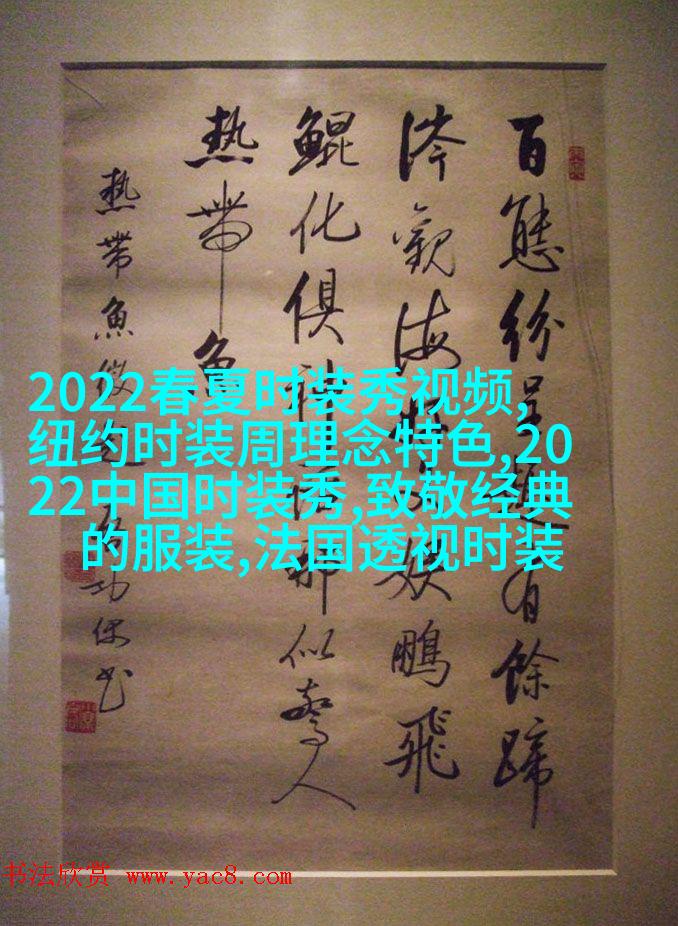 百態紛呈有餘蹄
涔觀海鵬飛
鯤化俱神那似驚人
熱帶魚
熱帶魚徵題
2022春夏时装秀视频,
纽约时装周理念特色,20
22中国时装秀,致敬经典
的服装,法国透视时装
书法欣赏 www.yac8.com